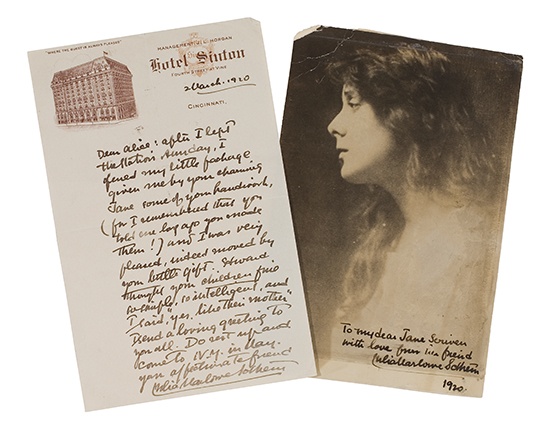 "WHERE THE GUEST IS ALWAYS PLEASED"
MANAGEMENT OF L. HORGAN
Hotel Sinton
FOURTH STREET AT VINE
2 March. 1920
CINCINNATI.
Dear Alice: after I left
the station Sunday, I
opened my little package
given me by your charming
Jane some of your handiwork,
(for I remembered that you
told me long ago you made
them!) and I was very
pleased, indeed moved by
your little gift.
thought your children fine
so intelligent, and
I said, "yes, like their mother"
I send a loving greeting to
you all. Do rest up and
come to N.Y. in May.
your affectionate friend
Julia Marlowe Sothern
To my dear Jane Scriven
with love from her friend
Julia Marlowe Sothern
1920.